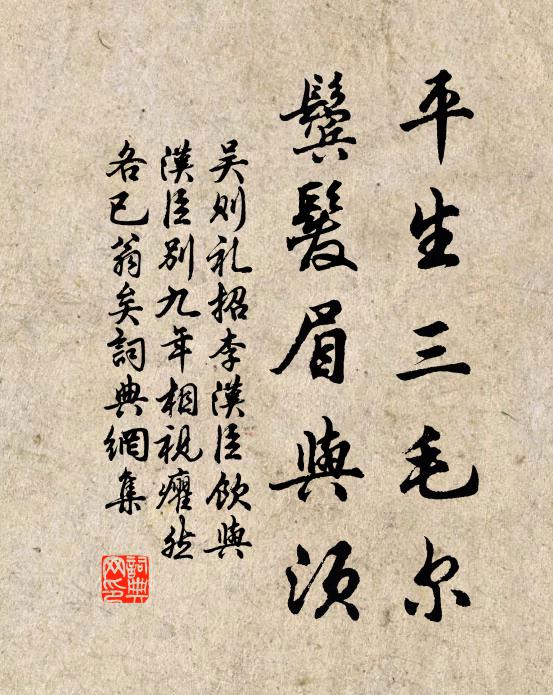 平生三毛尔
鬓髮眉與须
吴则礼招李漢臣飲與
漢臣別九年相視癯然
各已翁矣詞典網集
詞典网印